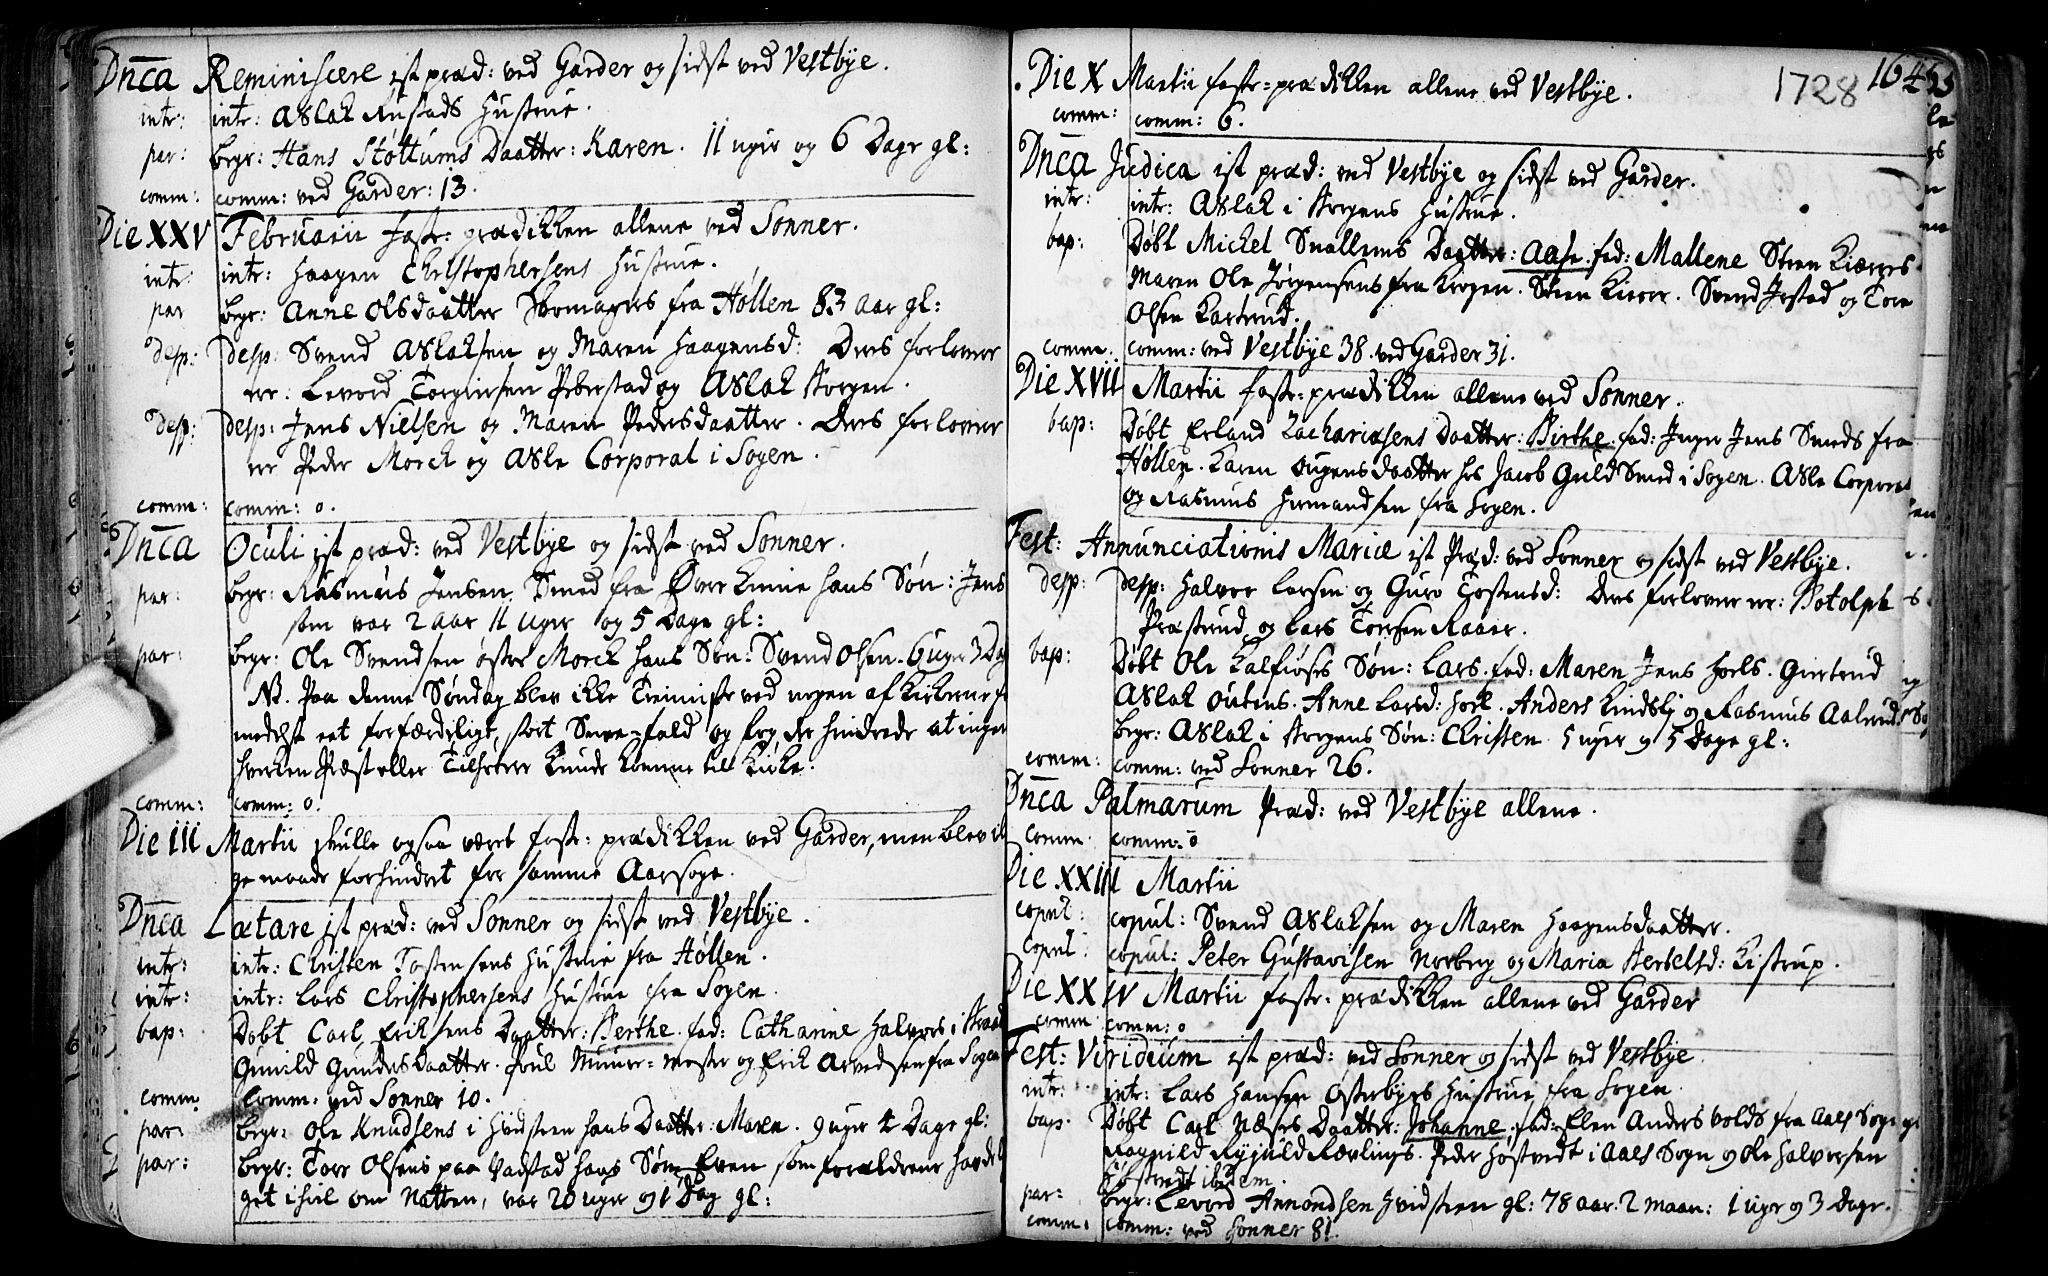 Dnca Reminiscere ist præd: ved Garder og sidst ved Vestbye.
intr: intr: Aslak Rustads Hustrue.
par: begr: Hans Støttums Daatter: Karen. 11 uger og 6 Dage gl:
comm: comm: ved Garder: 13.
Die XXV Februarii faste-prædikken allene ved Sonner.
intr: intr: Haagen Christophersens Hustrue.
par begr: Anne Olsdaatter Skomagers fra Høllen 83 Aar gl:
desp: desp: Svend Aslaksen og Maren Haagensd: Deres forlover
ere: Levord Torgiersen Peberstad og Aslak Korgen.
desp: desp: Jens Nielsen og Maren Pedersdaatter. Deres forlover
ere Peder Morck og Asle Corporal i Sogen.
comm: comm: 0.
Dnca Oculi ist præd: ved Vestbye og sidst ved Sonner.
par: begr: Rasmus Jensen Smed fra Øvre Kinnie hans Søn: Jens
som var 2 aar 11 uger og 5 Dage gl:
par: begr: Ole Svendsen østre Morck hans Søn: Svend Olsen. 6 uger 3 Dag
NB. Paa denne Søndag blev ikke Tienniste ved nogen af Kirkerne
medelst eet forfærdeligt stort Snee-fald og fog der hindrede at ingen
hverken Præst eller Tilhørere kunde komme til Kirke.
comm: comm: 0.
Die III Martii skulle ogsaa været faste-prædikken ved Garder, men blev i li
ge maade forhindret for samme Aarsage.
Dnca Lætare ist præd: ved Sonner og sidst ved Vestbye.
intr: intr: Christen Tostensens Hustrue fra Høllen.
intr: intr: Lars Christophersens Hustrue fra Sogen.
bap: Døbt Carl Eriksens Daatter: Berthe. fad: Catharine Halvors i
Gunild Gundersdaatter. Poul Muur-mester og Erik Arvedsen fra Sogen
comm Comm. ved Sonner 10.
par: begr: Ole Knudsens i Hvidsteen hans Daatter: Maren. 9 uger 4 Dage gl:
par: begr: Tore Olsens paa Vadstad hans Søn Even som forældrene havde
get ihiel om Natten, var 20 uger og 1 Dag gl:
1728 164
Die X Martii faste-prædikken allene ved Vestbye.
comm: comm: 6.
Dnca Judica ist præd: ved Vestbye og sidst ved Garder.
intr: intr: Aslak i Korgens Hustrue.
bap: Døbt Michel Snallems Daatter: Aase. fad: Mallene Steen Kiærres
Maren Ole Jørgensens fra Krogen. Steen Kierr. Svend Jestad og Tore
Olsen Kartrud.
comm. comm: ved Vestbye 38. ved Garder 31.
Die XVII Martii faste-prædikken allene ved Sonner.
bap: Døbt Erland Zachariasens Daatter: Birthe. fad: Inger Jens Smeds fra
Høllen. Karen Ougensdaatter hos Jacob Guldsmed i Sogen. Asle Corporal
og Rasmus Hermandsen fra Sogen.
Fest: Annunciationis Mariæ ist Præd: ved Sonner og sidst ved Vestbye.
desp: desp: Halvor Larsen og Guro Tostensd: Deres forlover ere: Botolph
Præstrud og Lars Torersen Raaer.
bap: Døbt Ole Kalfiøses Søn: Lars. fad: Maren Jens Hoels. Giertrud
Aslak Outens. Anne Larsd: Hoel. Anders Lindsby og Rasmus Aalerud.
begr: Aslak i Korgens Søn: Christen 5 uger og 5 Dage gl:
comm: comm: ved Sonner 26.
Dnca Palmarum Præd: ved Vestbye allene.
comm comm: 0
Die XXIII Martii
copul: copul: Svend Aslaksen og Maren Haagensdaatter.
copul: copul: Peter Gustavisen Norberg og Maria Bertelsd: Kistrup.
Die XXIV Martii faste-prædikken allene ved Garder
comm comm: 0
Fest: Viridium ist præd: ved Sonner og sidst ved Vestbye
intr: intr: Lars Hansen Østerbyes Hustrue fra Sogen.
bap. Døbt Carl Næses Daatter: Johanne. fad: Elen Anders Volds fra Aals Sogn
Ragnild Rævlings. Peder Høstvedt i Aals Sogn og Ole Halvorsen
Høstvedt ibidem.
par: begr: Levord Amondsen Hvidsteen gl: 78 aar. 2 maan: 1 uger og 3 Dage.
comm: comm: ved Sonner 81.